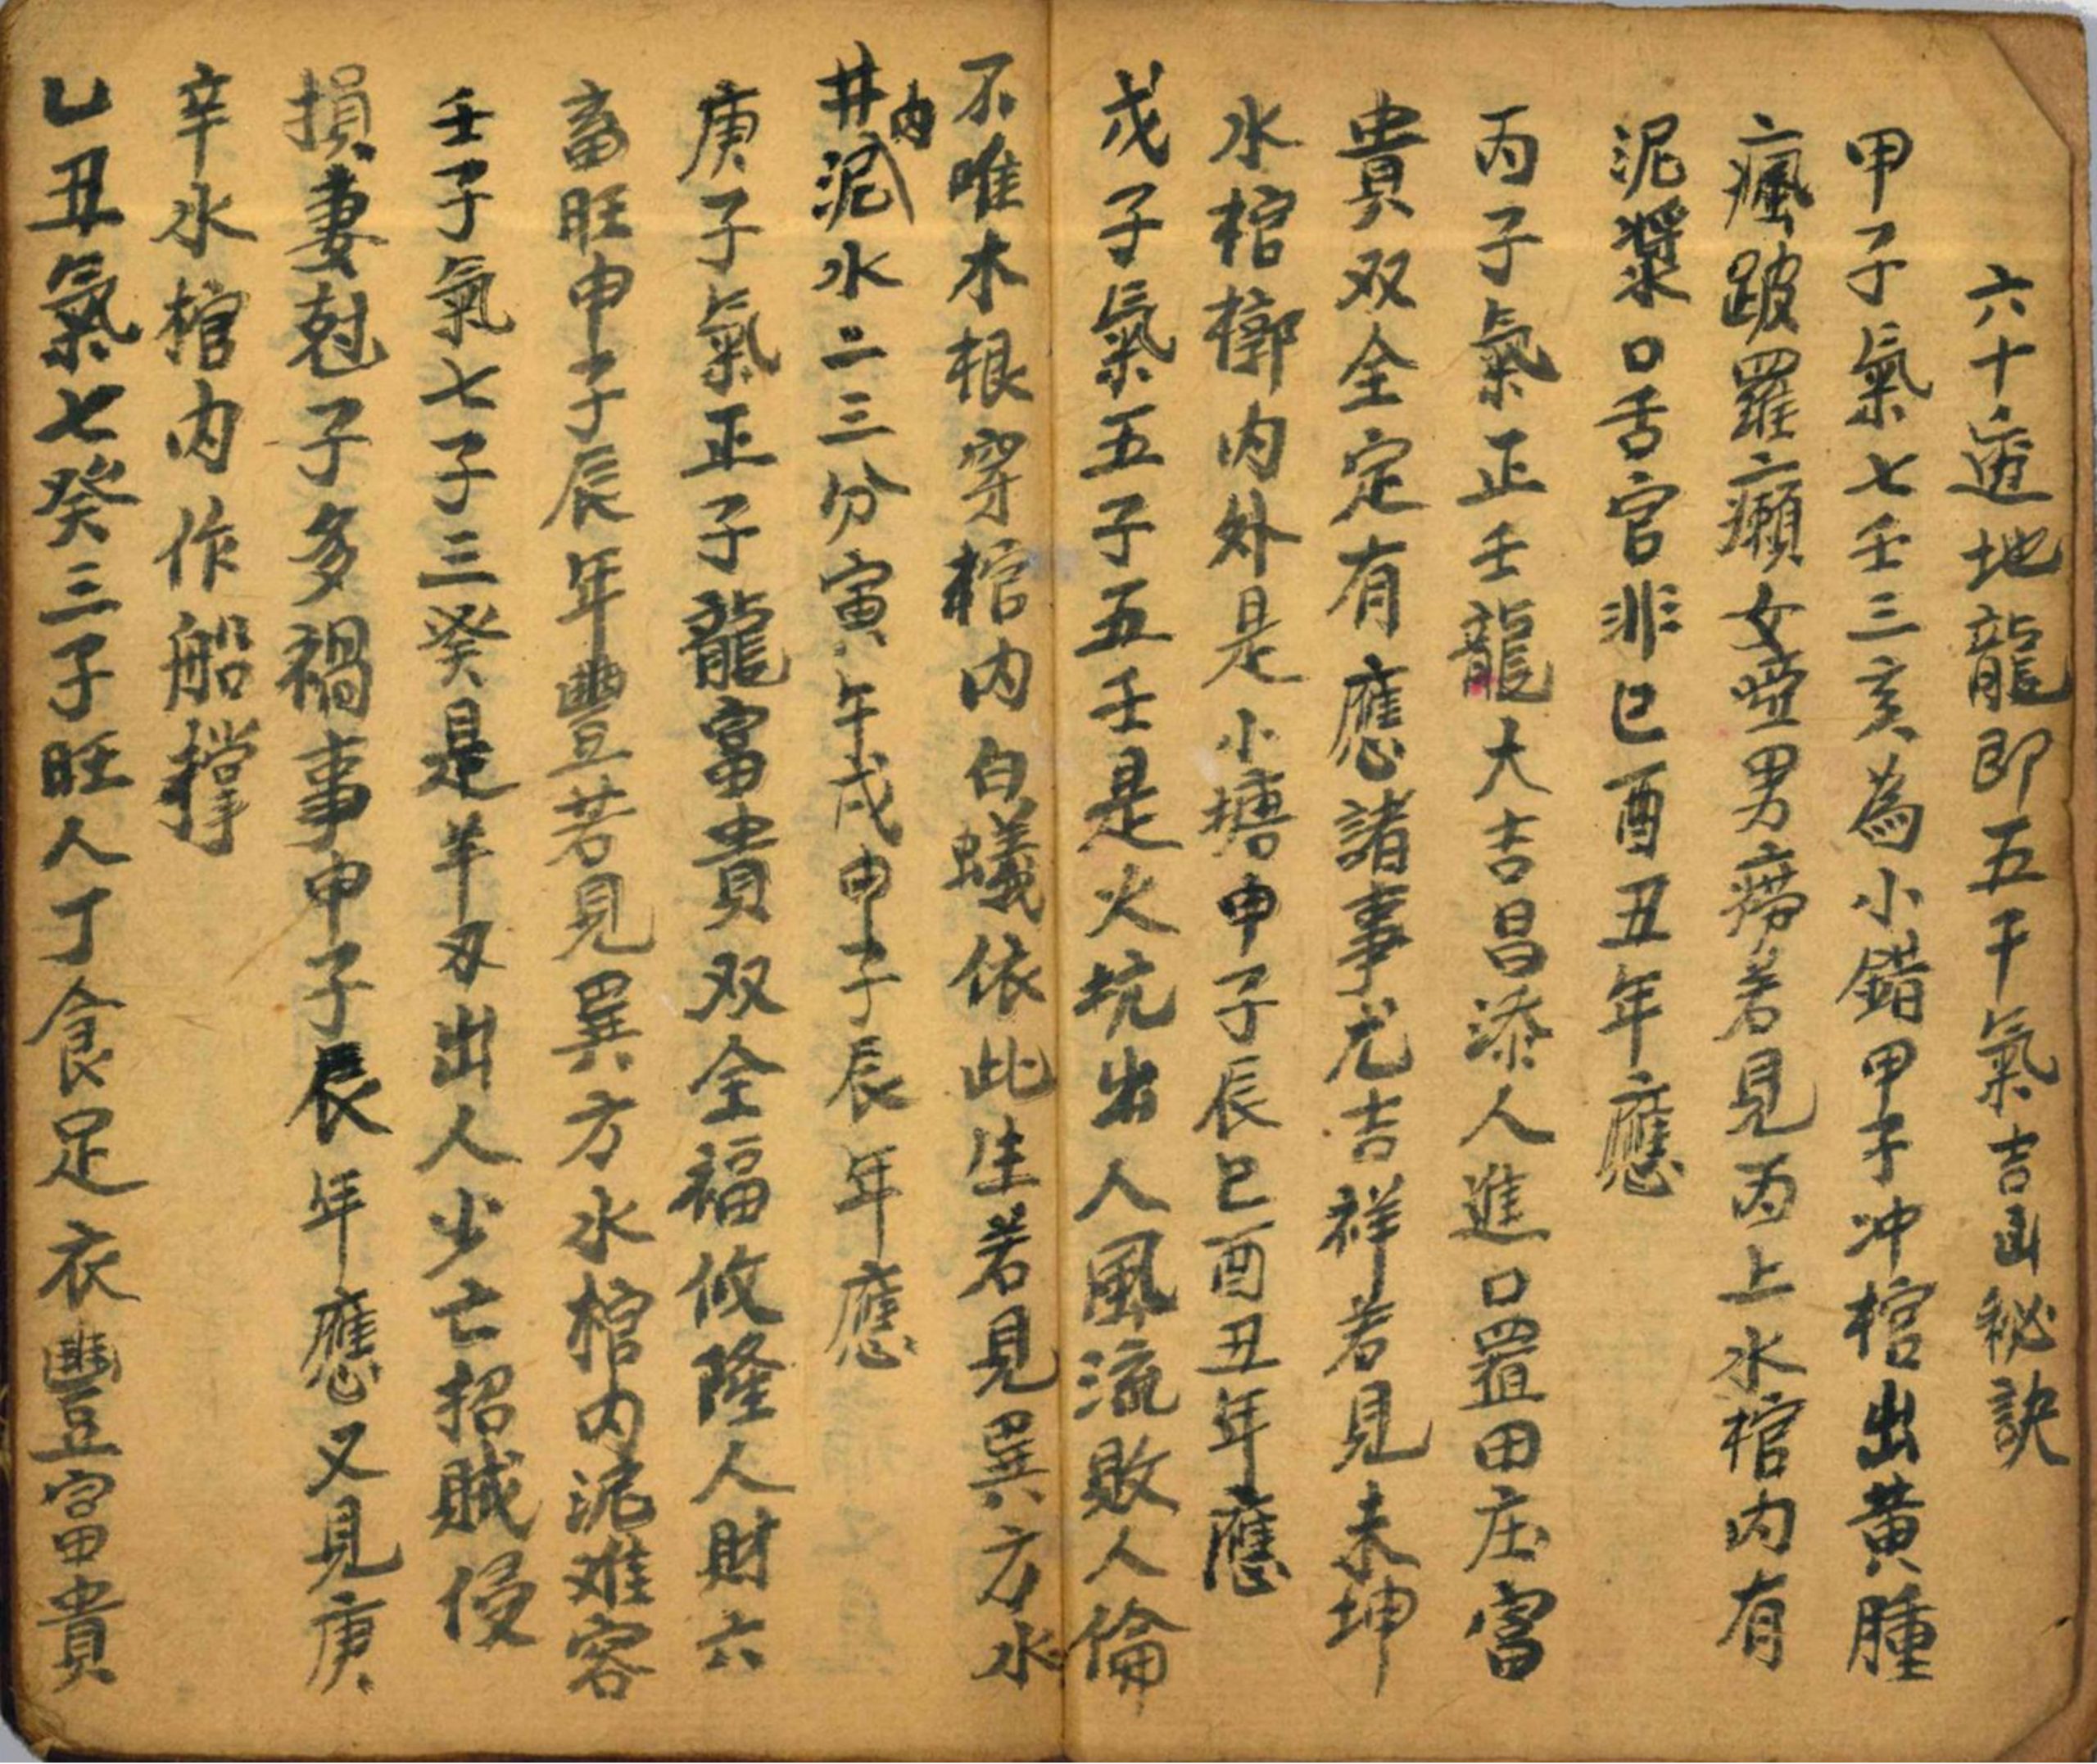 六十透地龍即五干氣吉凶秘訣
甲子氣七壬三亥為小錯甲子冲棺出黄腫
瘋跛羅癩女啞男癆若見丙上水棺内有
泥漿口舌官非巳酉丑年應
丙子氣正壬龍大吉昌添人進口置田庄富
貴双全定有應諸事尤吉祥若見未坤
水棺槨内外是小塘申子辰巳酉丑年應
戊子氣五子五壬是火坑出人風流敗人倫
不唯木根穿棺内白蟻依此生若見巽方水
井内泥水二三分寅午戌申子辰年應
庚子氣正子龍富貴双全福攸隆人財六
畜旺申子辰年豐若見巽方水棺内泥难容
壬子氣七子三癸是羊刃出人少亡招賊侵
損妻尅子多禍事申子辰年應又見庚
辛水棺内作船撑
乙丑氣七癸三子旺人丁食足衣豐富貴